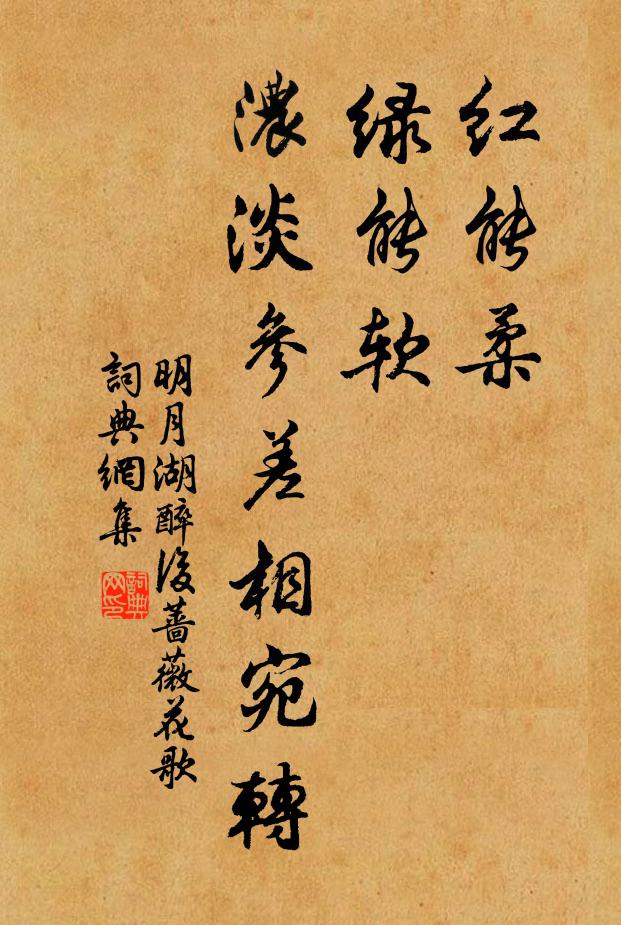 红能柔
緑能软
濃淡參差相宛轉
明月湖醉後薔薇花歌
詞典網集
詞典网印